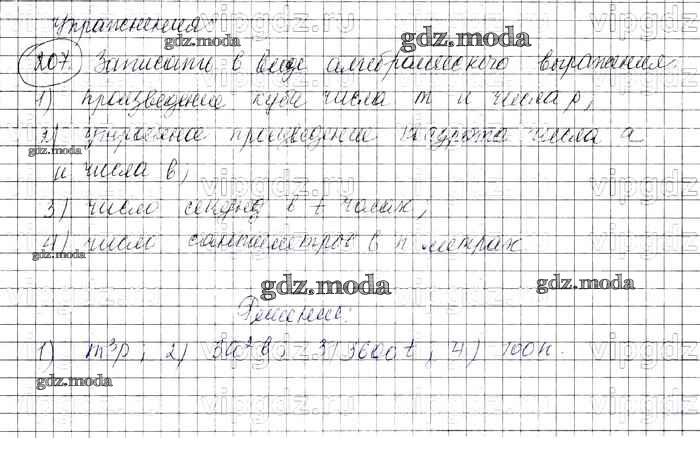 Упражнения
207. Записать в виде алгебраического выражения:
1) произведение куба числа m и числа p;
2) утроенное произведение квадрата числа a
и числа b;
3) число секунд в t часах;
4) число сантиметров в n метрах
Решение:
1) m³p; 2) 3a²b 3) 3600t; 4) 100n.
gdz.moda
gdz.moda
gdz.moda
gdz.moda
gdz.moda
gdz.moda
gdz.moda
vipgdz.ru